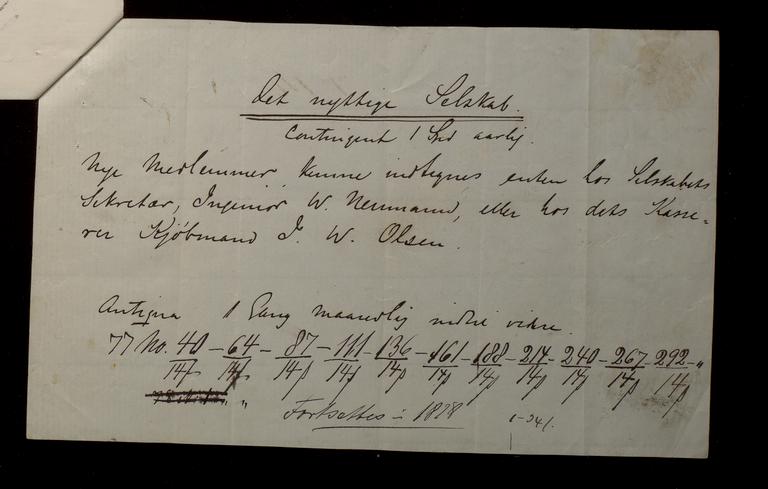 Det nyttige Selskab.
Contingent 1 Spd aarlig.
Nye Medlemmer kunne indtegnes enten hos Selskabets
Sekretær, Ingeniör W. Neumann, eller hos dets Kasse-
rer Kjöbmand J. W. Olsen.
Antiqua 1 Gang maanedlig indtil videre.
77 No. 40 - 64 - 87 - 111 - 136 - 161 - 188 - 214 - 240 - 267 - 292 - "
14p 14p 14p 14p 14p 14p 14p 14p 14p 14p 14p
Fortsættes i 1878